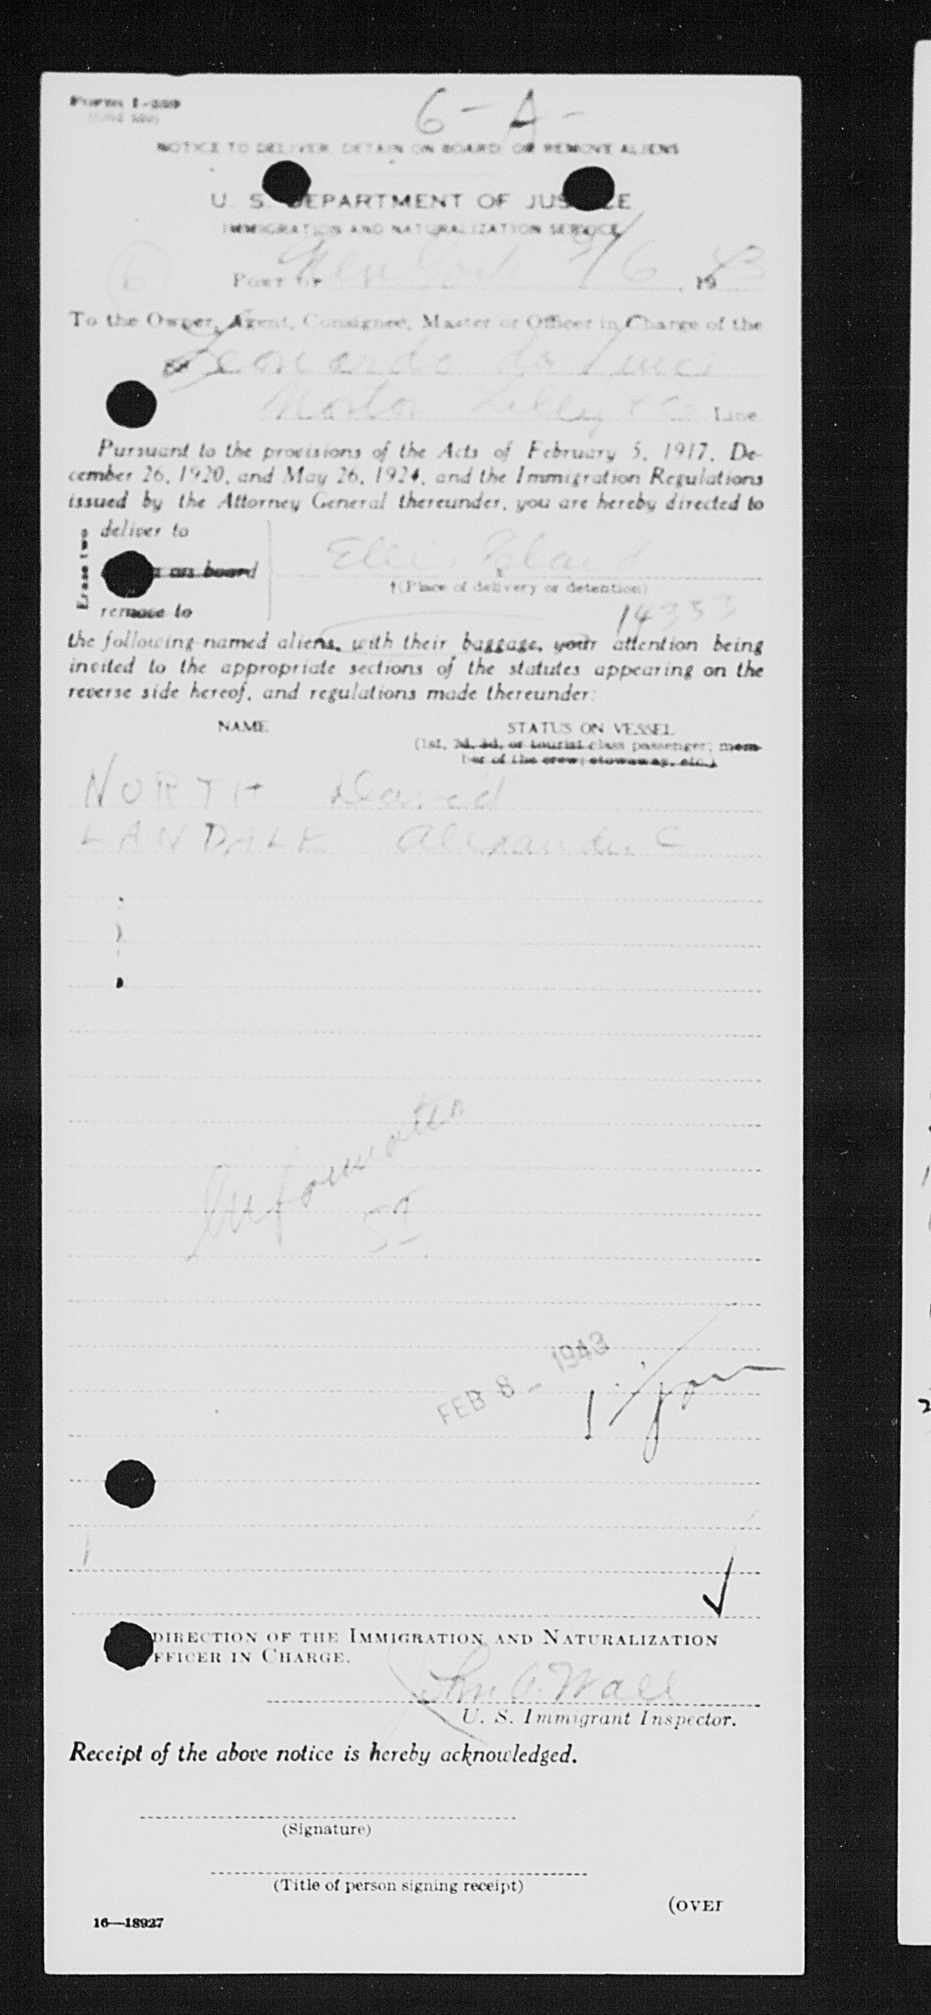 Form I-259
6 - A -
NOTICE TO DELIVER, DETAIN ON BOARD, OR REMOVE ALIENS
U. S. DEPARTMENT OF JUSTICE
IMMIGRATION AND NATURALIZATION SERVICE
PORT OF New York 2/6, 1943
To the Owner, Agent, Consignee, Master or Officer in Charge of the
Leonardo da Vinci
Norton Lilly & Co Line
Pursuant to the provisions of the Acts of February 5, 1917, De-
cember 26, 1920, and May 26, 1924, and the Immigration Regulations
issued by the Attorney General thereunder, you are hereby directed to
Erase two
deliver to
on board
Ellis Island
†(Place of delivery or detention)
remove to
14353
the following-named aliens, with their baggage, your attention being
invited to the appropriate sections of the statutes appearing on the
reverse side hereof, and regulations made thereunder:
NAME STATUS ON VESSEL
(1st, 2d, 3d, or tourist class passenger; mem-
ber of the crew; stowaway, etc.)
NORTH David
LANDALE Alexander C
Information
SI
FEB 8 - 1943
DIRECTION OF THE IMMIGRATION AND NATURALIZATION
FFICER IN CHARGE.
John A. Wall
U. S. Immigrant Inspector.
Receipt of the above notice is hereby acknowledged.
(Signature)
(Title of person signing receipt)
(OVER
16—18927